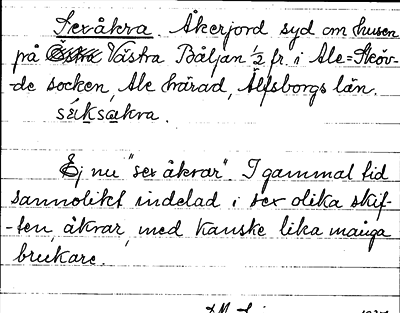 Sexåkra. Åkerjord syd om husen
på Västra Båljan 1/2 fr. i Ale=Sköv-
de socken, Ale härad, Älfsborgs län.
séksákra.
Ej nu "sex åkrar". I gammal tid
sannolikt indelad i sex olika skif-
-ten, åkrar, med kanske lika många
brukare.